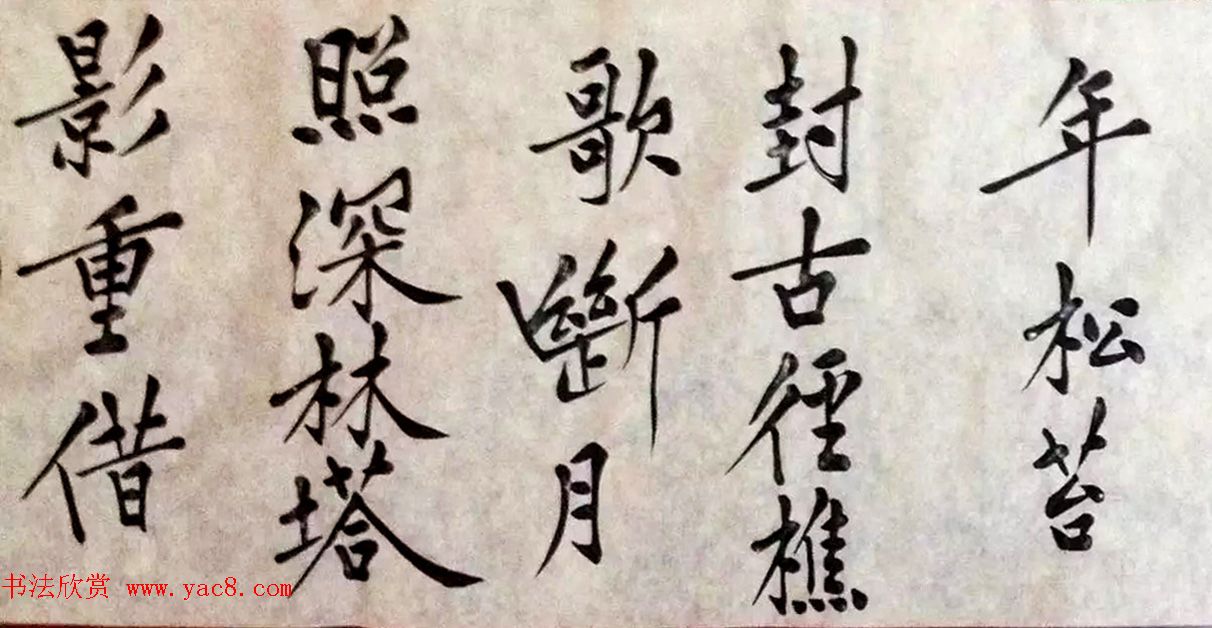 年松苔
封古徑樵
歌斷月
照深林塔
影重借
书法欣赏 www.yac8.com